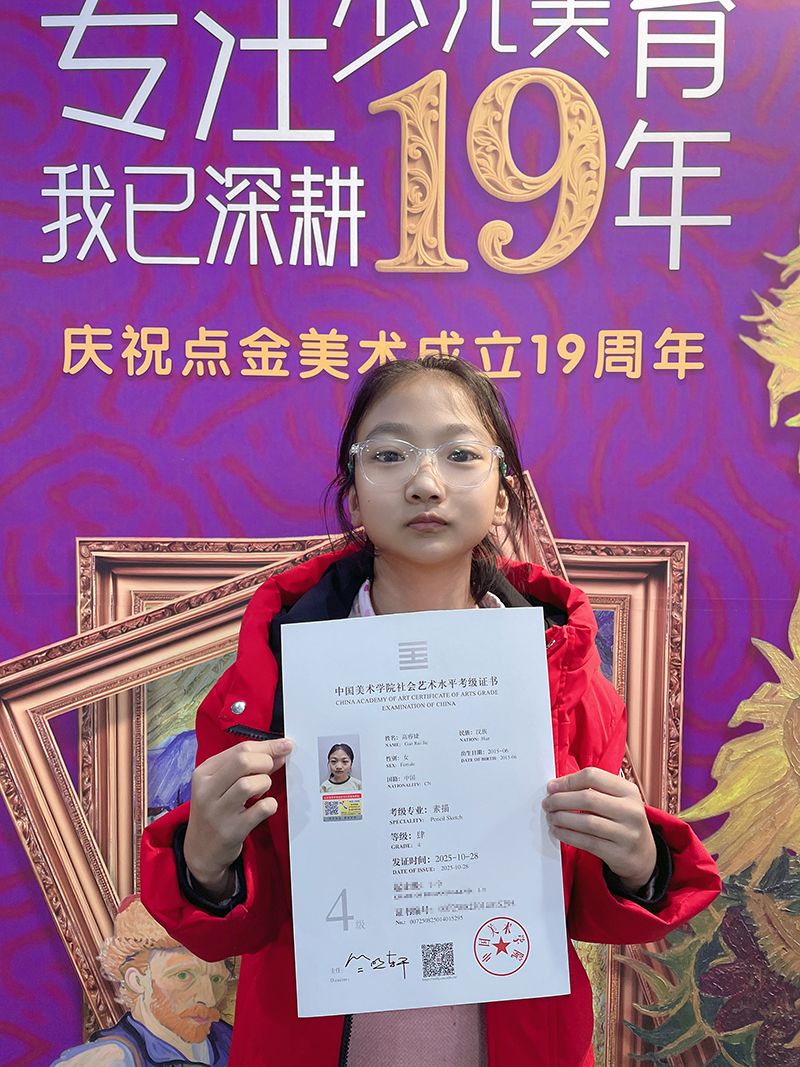 专注少儿美育
我已深耕19年
庆祝点金美术成立19周年
中国美术学院社会艺术水平考级证书
CHINA ACADEMY OF ART CERTIFICATE OF ARTS GRADE
EXAMINATION OF CHINA
姓名: 高睿婕 民族: 汉族
NAME: Gao Rui Jie NATION: Han
性别: 女 出生日期: 2015-06
SEX: Female DATE OF BIRTH: 2015-06
国籍: 中国
NATIONALITY: CN
考级专业: 素描
SPECIALITY: Pencil Sketch
等级: 肆
GRADE: 4
发证时间: 2025-10-28
DATE OF ISSUE: 2025-10-28
证书编号:
No.: 00725082501401S295
4级
主任:
Director:
中国美术学院